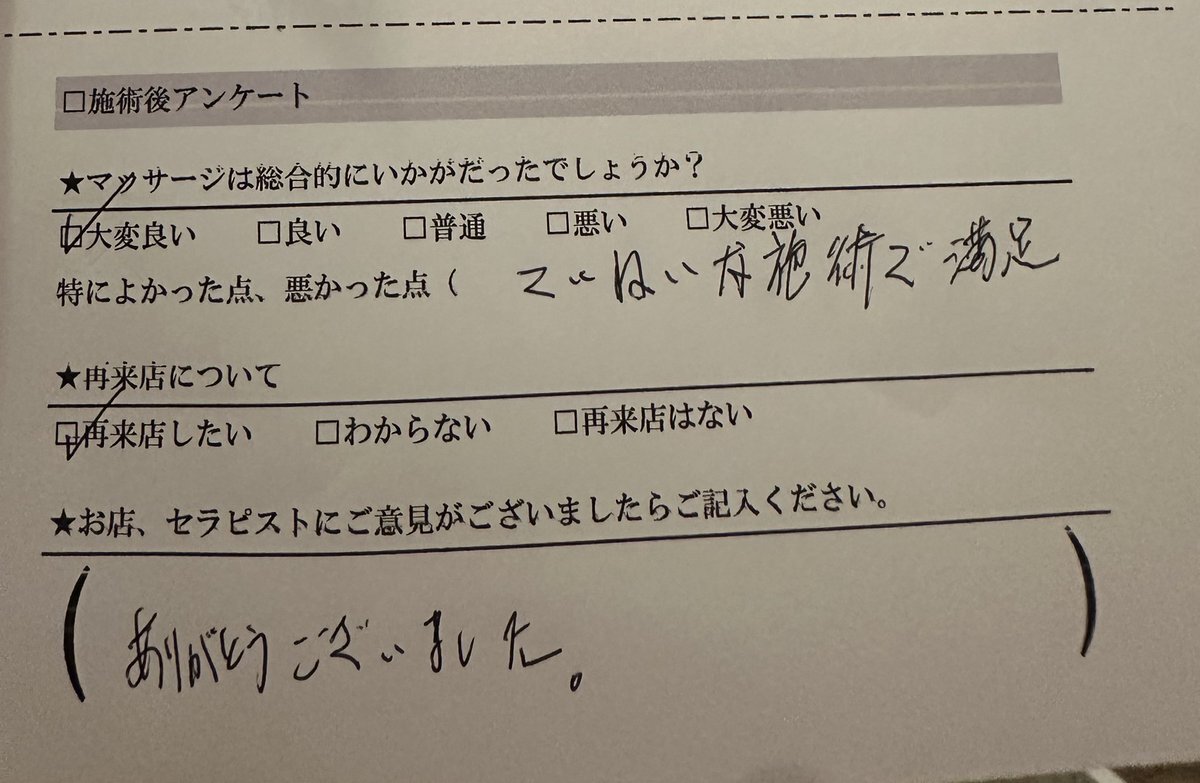 □施術後アンケート
★マッサージは総合的にいかがだったでしょうか?
☑大変良い □良い □普通 □悪い □大変悪い
特によかった点、悪かった点( ていねいな施術で満足
★再来店について
☑再来店したい □わからない □再来店はない
★お店、セラピストにご意見がございましたらご記入ください。
(ありがとうございました。)